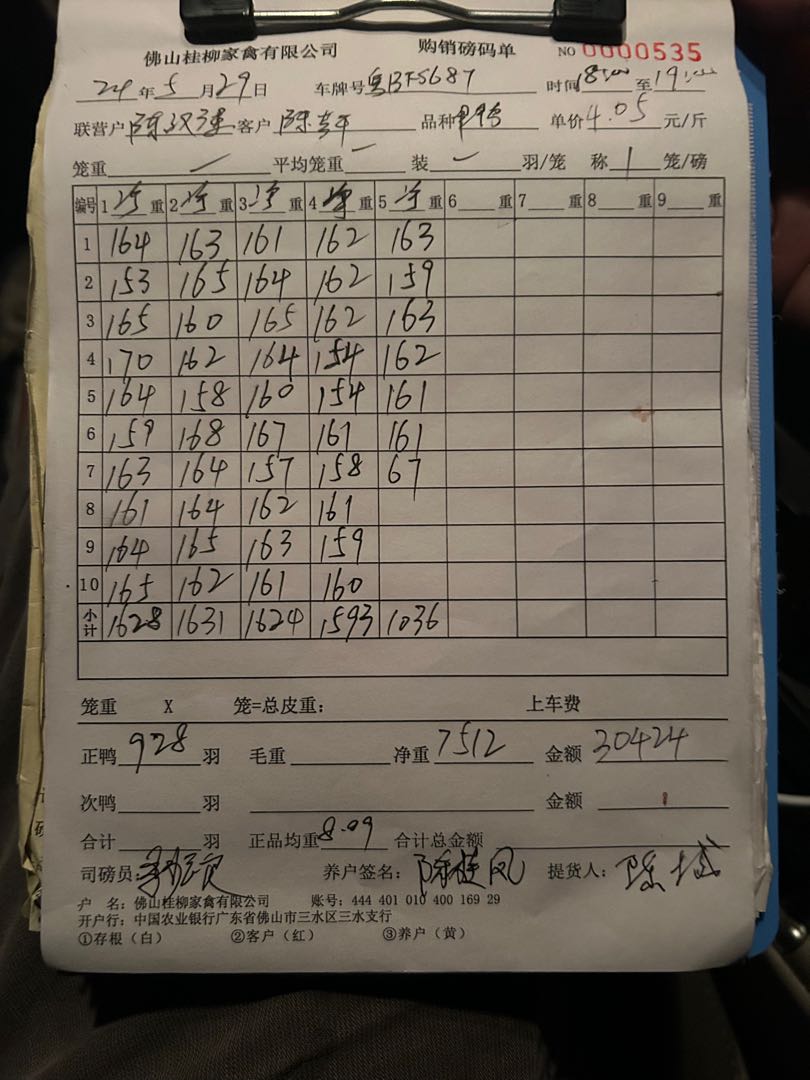 佛山桂柳家禽有限公司 购销磅码单 NO 0000535
24年5月29日 车牌号粤BFS687 时间18:00至19:00
联营户陈汉强 客户陈 品种 单价4.05元/斤
笼重 一 平均笼重 一 装 一 羽/笼 称 1 笼/磅
编号 1净重 2净重 3净重 4净重 5净重 6 重 7 重 8 重 9 重
1 164 163 161 162 163
2 153 165 164 162 159
3 165 160 165 162 163
4 170 162 164 154 162
5 164 158 160 154 161
6 159 168 167 161 161
7 163 164 157 158 67
8 161 164 162 161
9 164 165 163 159
10 165 162 161 160
小计 1628 1631 1624 1593 1036
笼重 X 笼=总皮重： 上车费
正鸭928羽 毛重 净重7512 金额30424
次鸭 羽 金额
合计 羽 正品均重8.09 合计总金额
司磅员： 养户签名：陈桂凤 提货人：陈
户 名：佛山桂柳家禽有限公司 账号：444 401 010 400 169 29
开户行：中国农业银行广东省佛山市三水区三水支行
①存根（白） ②客户（红） ③养户（黄）